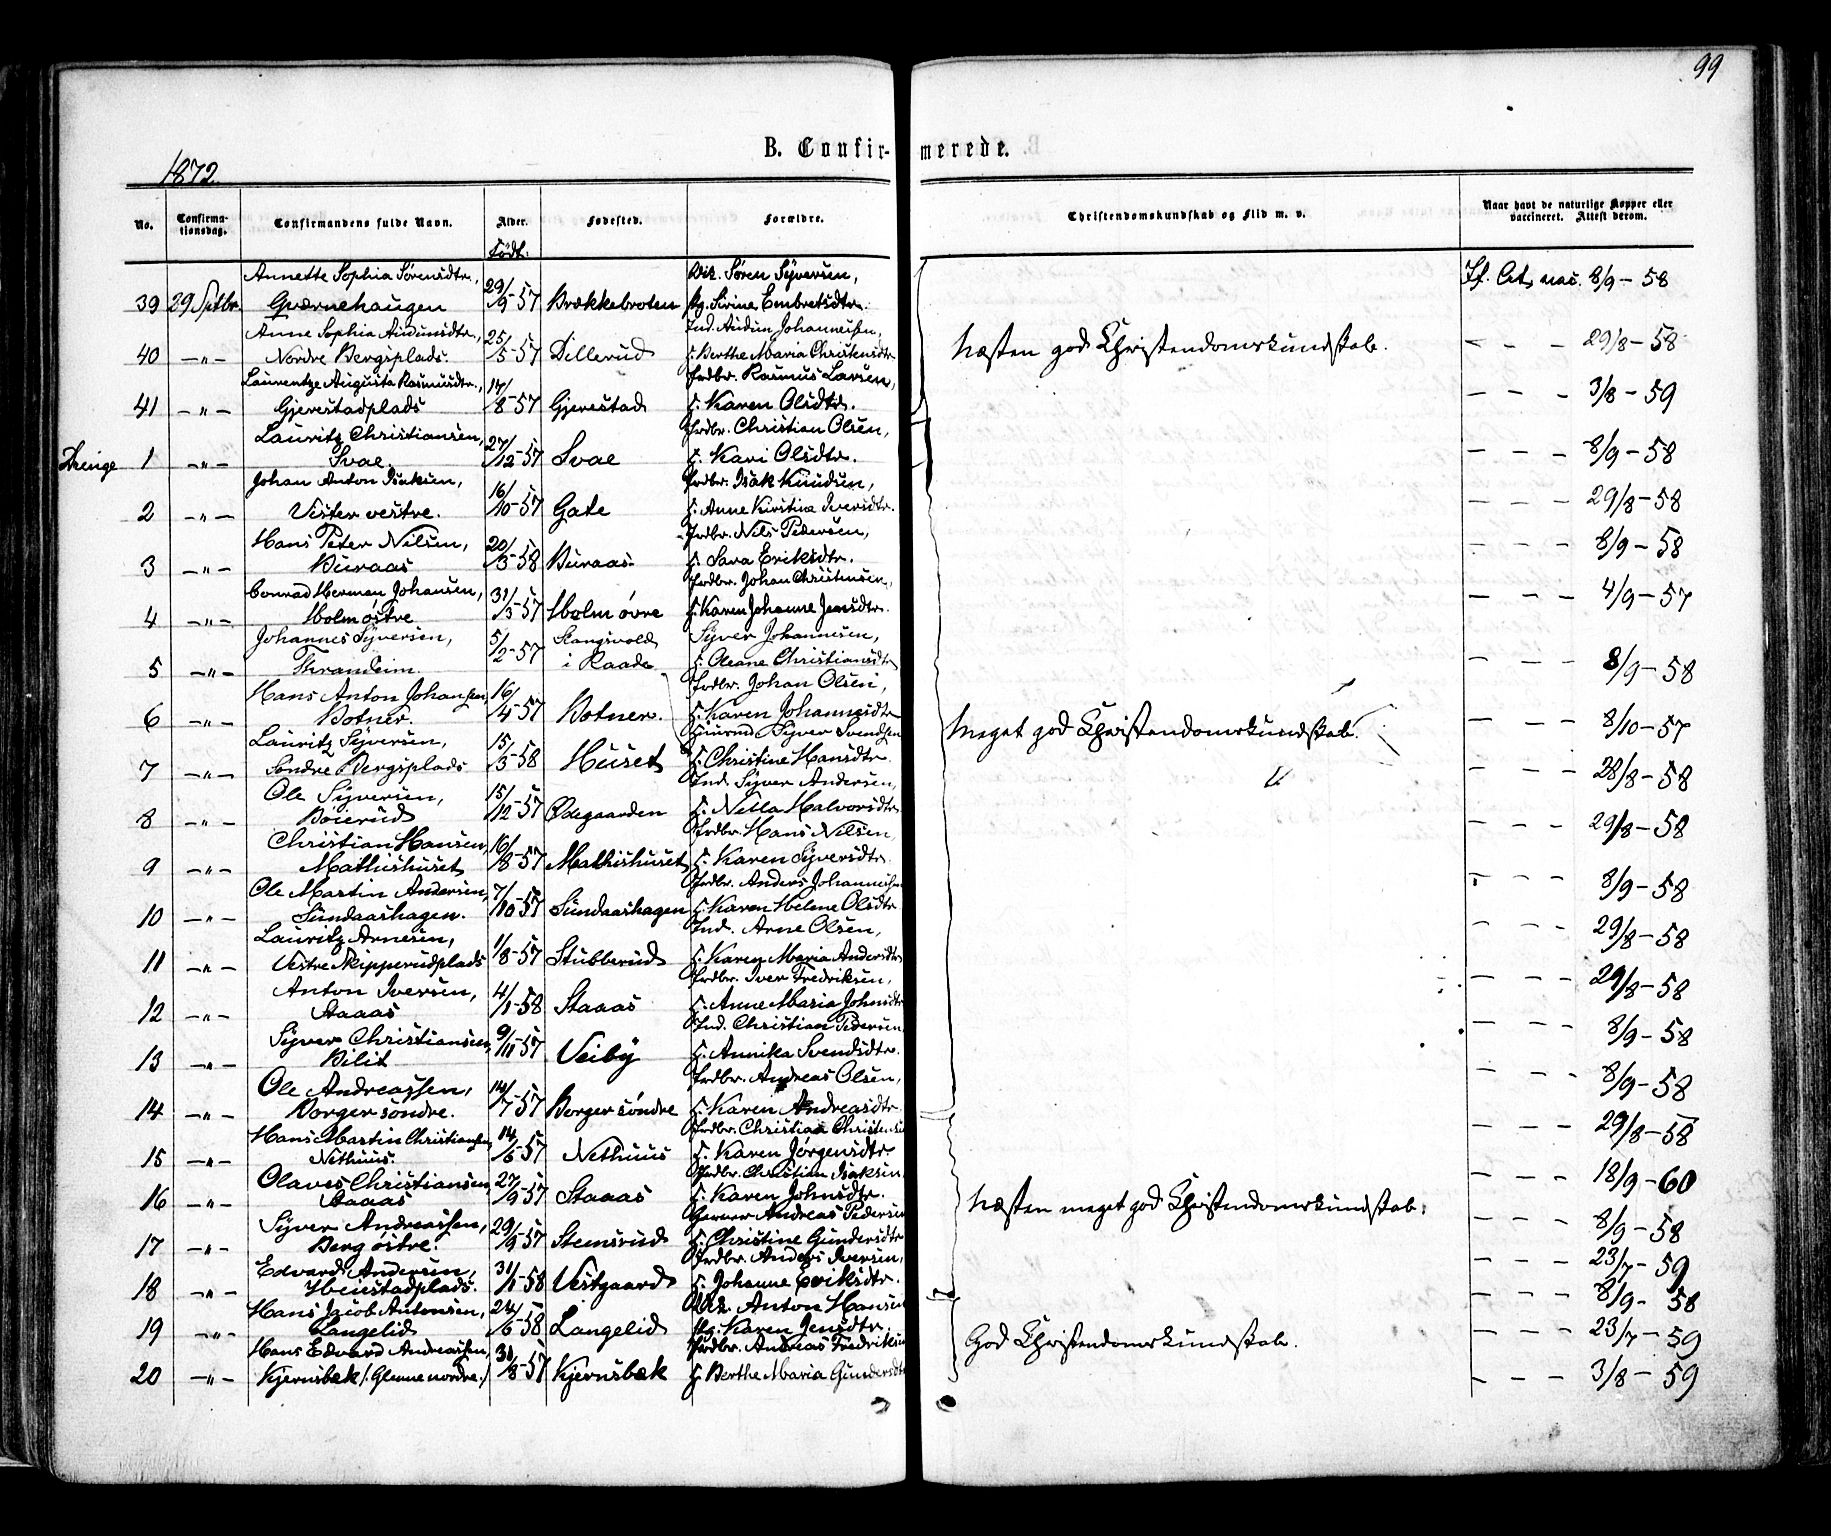 99
B. Confirmerede.
1872.
No. Confirmationsdag. Confirmandens fulde Navn. Alder. Fødested. Forældre. Christendomskundskab og Flid m. v. Naar havt de naturlige Kopper eller vaccineret. Attest derom.
Født:
Annette Sophia Sørensdtr., Søren Syversen,
39 29 Septbr. Qværnehaugen 29/9-57 Brækkebroten Sirine Embretsdtr. 8/9-58
Anne Sophia Audunsdtr., Ind. Audun Johannesen,
40 -"- Nordre Bergsplads. 25/5-57 Dillerud Berthe Maria Christensdtr Næsten god Christendomskundskab. - - - 29/8-58
Laurentze Augusta Rasmusdtr., Grdbr. Rasmus Larsen,
41 -"- Gjerestadplads 17/8-57 Gjerestad Karen Olsdtr. - - - 3/8-59
Lauritz Christiansen, Grdbr. Christian Olsen,
Drenge 1 -"- Svae. 27/12-57 Svae Kari Olsdtr. - - - 8/9-58
Johan Anton Isaksen, Grdbr. Isak Knudsen,
2 -"- Vister vestre. 16/10-57 Gate Anne Kirstine Iversdtr. - - - 29/8-58
Hans Peter Nilsen, Grdbr. Nils Pedersen,
3 -"- Buraas 20/3-58 Buraas Sara Eriksdtr. - - - 8/9-58
Conrad Herman Johansen, Grdbr. Johan Christensen,
4 -"- Holm østre 31/3-57 Holm øvre Karen Johanne Jensdtr. - - - 4/9-57
Johannes Syversen, Stangsvold Syver Johannesen,
5 -"- 5/2-57 i Raade Oleane Christiansdtr - - - 8/9-58
Hans Anton Johansen, Grdbr. Johan Olsen,
6 -"- Botner. 16/4-57 Botner. Karen Johannesdtr Meget god Christendomskundskab. - - - 8/10-57
Lauritz Syversen, Syver Svendsen
7 -"- Søndre Bergsplads 15/3-58 Huset Christine Hansdtr. - - - 28/8-58
Ole Syversen, Ind. Syver Andersen,
8 -"- Bøierud 15/12-57 Ødegaarden Nella Halvorsdtr - - - 29/8-58
Christian Hansen, Grdbr. Hans Nilsen,
9 -"- Mathishuset 16/8-57 Mathishuset Karen Syversdtr. - - - 8/9-58
Ole Martin Andersen, Grdbr. Anders Johannesen
10 -"- Sundaashagen. 7/10-57 Sundaashagen Karen Helene Olsdtr - - - 29/8-58
Lauritz Arnesen, Ind. Arne Olsen,
11 -"- Vestre Skipperudplads 1/8-57 Stubberud Karen Maria Andersdtr - - - 29/8-58
Anton Iversen, Grdbr. Iver Fredriksen,
12 -"- Staaas 4/1-58 Staaas Anne Maria Johnsdtr - - - 8/9-58
Syver Christiansen, Ind. Christian Pedersen
13 -"- Bilit 9/11-57 Veiby Annika Svendsdtr. - - - 8/9-58
Ole Andreassen, Grdbr. Andreas Olsen,
14 -"- Borger søndre. 14/7-57 Borger søndre Karen Andreasdtr. - - - 29/8-58
Hans Martin Christiansen, Grdbr. Christian Christensen
15 -"- Nethuus. 14/5-57 Nethuus Karen Jørgensdtr - - - 18/9-60
Olaves Christiansen, Grdbr. Christian Isaksen
16 -"- Staaas 27/9-57 Staaas Karen Johnsdtr. Næsten meget god Christendomskundskab. - - - 8/9-58
Syver Andreassen, Andreas Pedersen
17 -"- Berg østre. 29/9-57 Stemsrud Christine Gundersdtr - - - 23/7-59
Edvard Andersen, Grdbr. Anders Iversen,
18 -"- Heiestadplads. 31/1-58 Vestgaard Johanne Eriksdtr. - - - 8/9-58
Hans Jacob Antonsen, Anton Hansen
19 -"- Langelid 24/6-58 Langelid Karen Jensdtr. God Christendomskundskab. - - - 23/7-59
Hans Edvard Andreassen, Grdbr. Andreas Fredriksen
20 -"- Kjernsbæk /: Glenne nordre./ 31/8-57 Kjernsbæk Berthe Maria Gundersdtr - - - 3/8-59